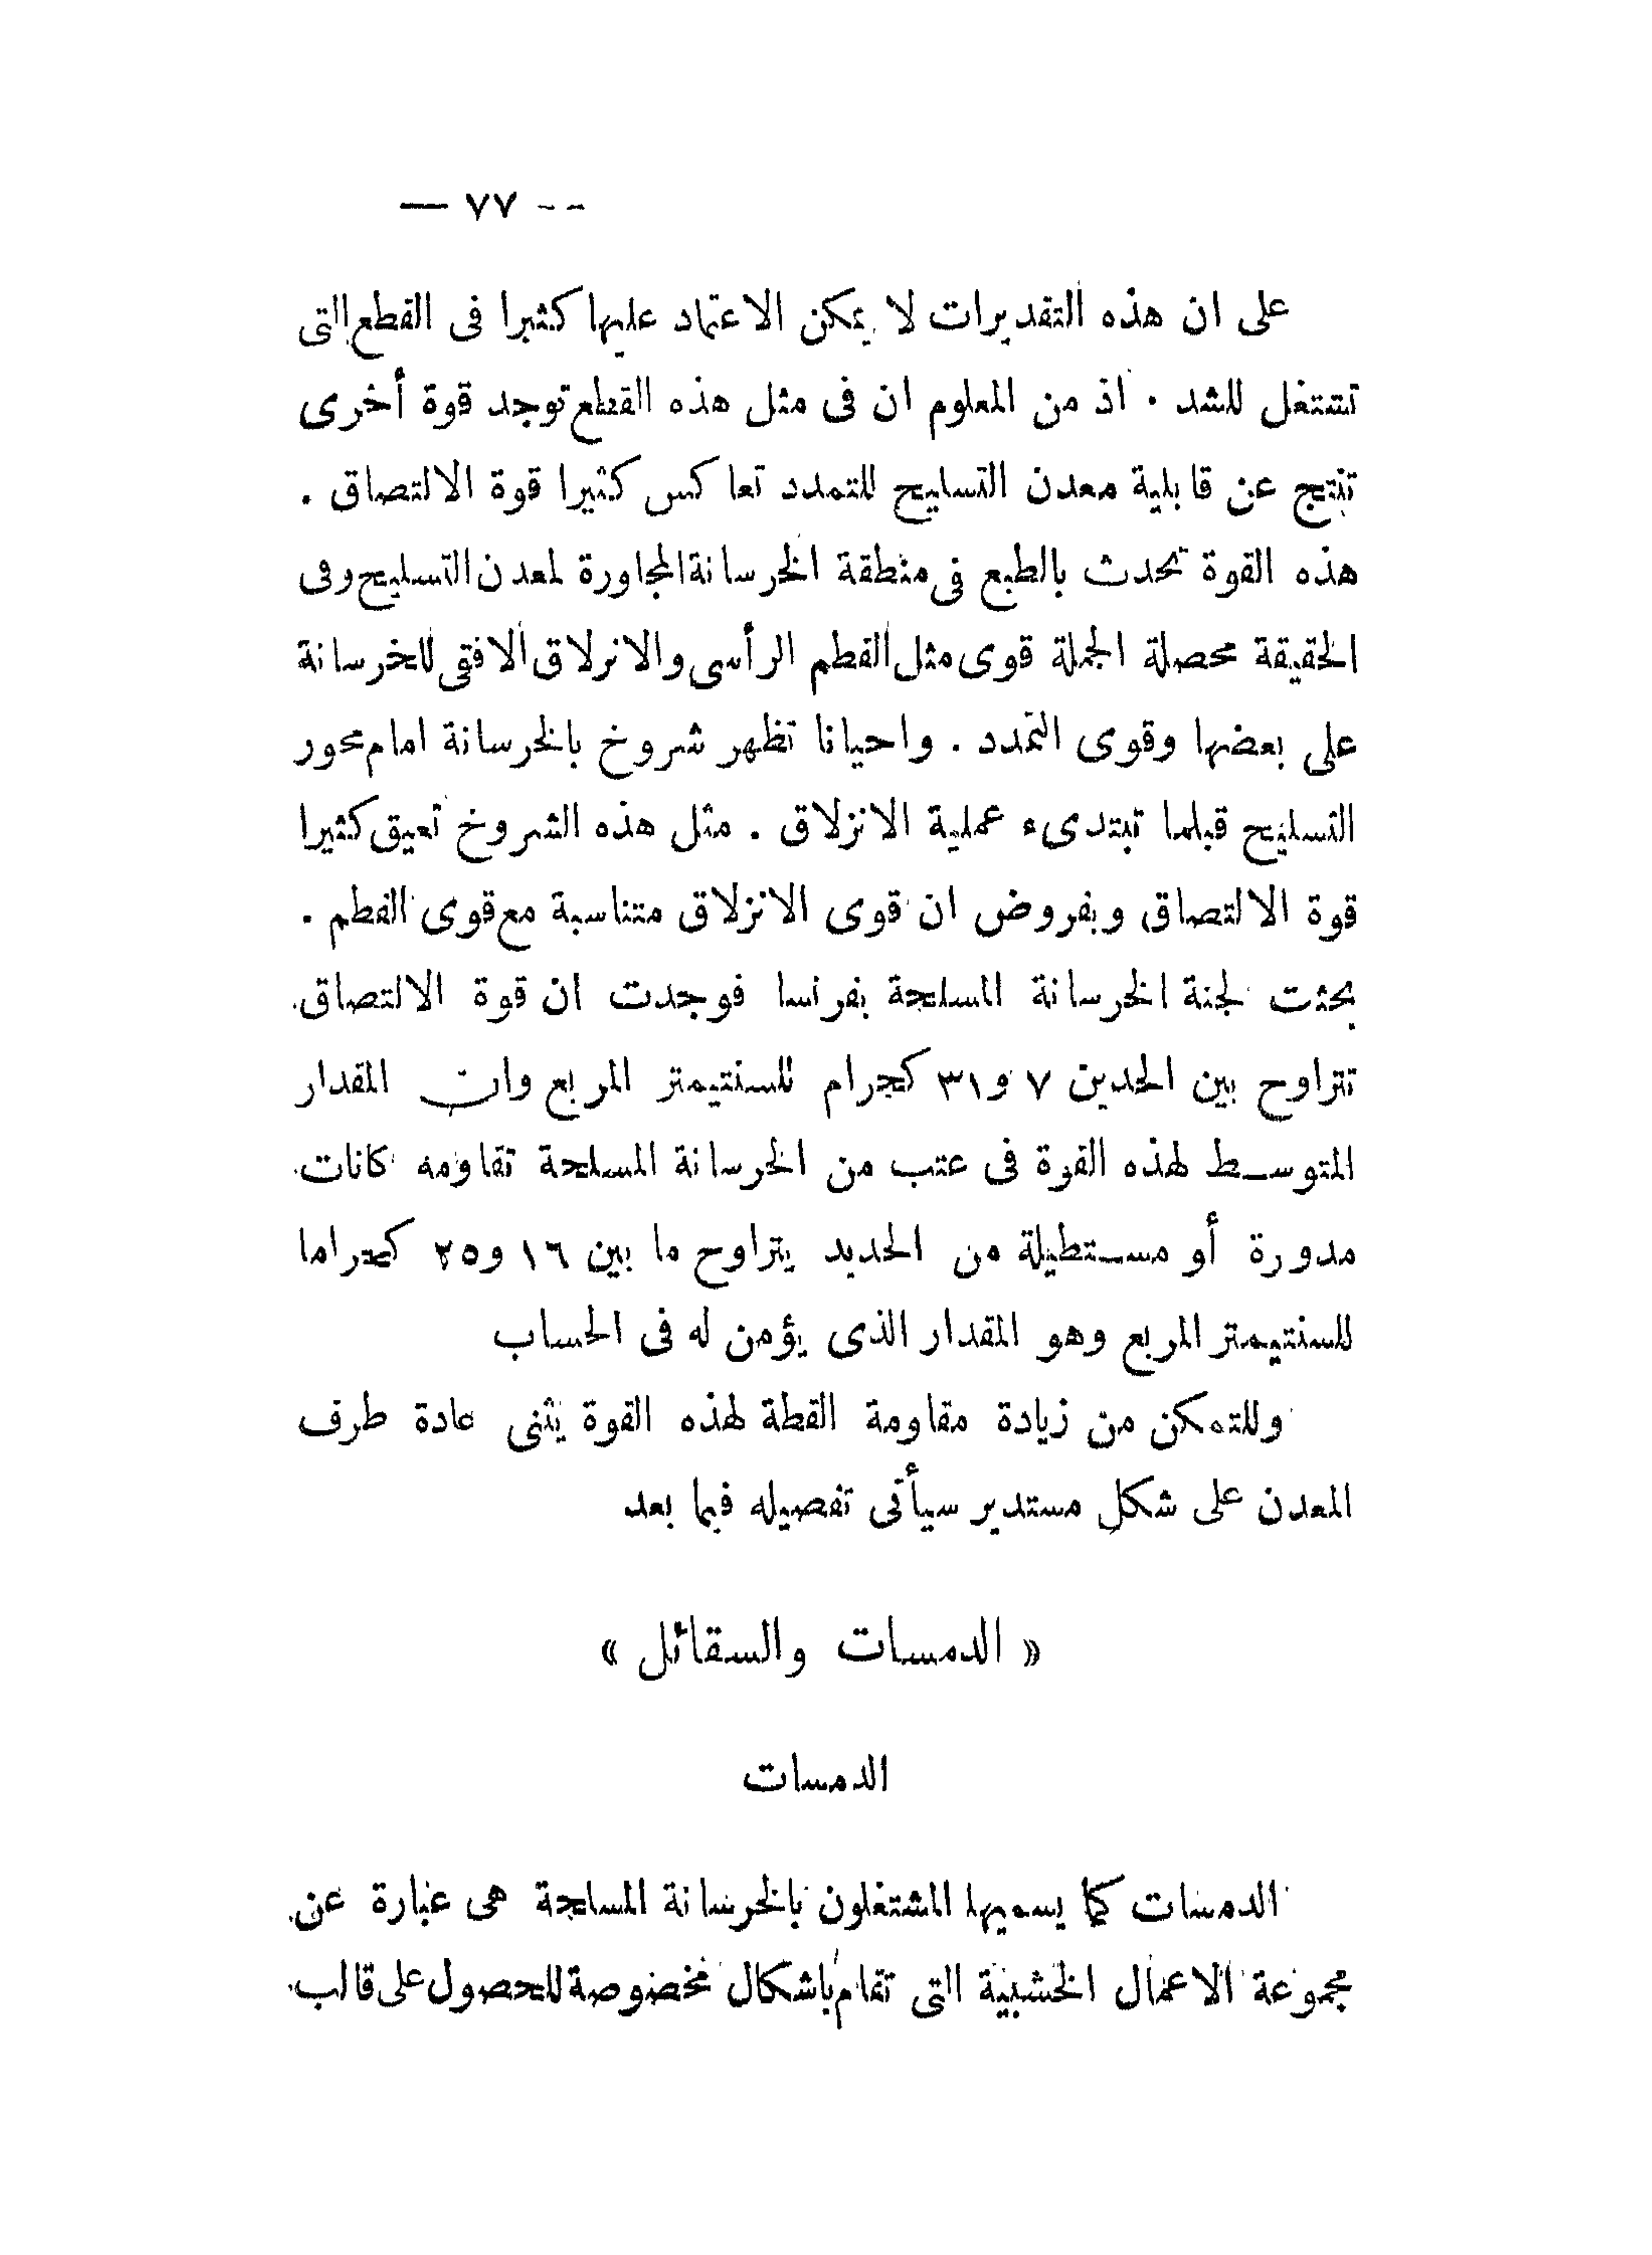 -- ٧٧ —
على ان هذه التقديرات لا يمكن الاعتماد عليها كثيرا فى القطع التى
تشتغل للشد . اذ من المعلوم ان فى مثل هذه القطع توجد قوة أخرى
تنتج عن قابلية معدن التسليح للتمدد تعاكس كثيرا قوة الالتصاق .
هذه القوة تحدث بالطبع فى منطقة الخرسانة المجاورة لمعدن التسليح وفى
الحقيقة محصلة الجملة قوى مثل القطم الرأسى والانرلاق الافقى للخرسانة
على بعضها وقوى التمدد . واحيانا تظهر شروخ بالخرسانة امام محور
التسليح قبلما تبتدىء عملية الانزلاق . مثل هذه الشروخ تعيق كثيرا
قوة الالتصاق وبفروض ان قوى الانزلاق متناسبة مع قوى القطم .
بحثت لجنة الخرسانة المسلحة بفرنسا فوجدت ان قوة الالتصاق
تتراوح بين الحدين ٧ و٣١ كجرام للسنتيمتر المربع وان المقدار
المتوسط لهذه القوة فى عتب من الخرسانة المسلحة تقاومه كانات
مدورة أو مستطيلة من الحديد يتراوح ما بين ١٦ و٢٥ كجراما
للسنتيمتر المربع وهو المقدار الذى يؤمن له فى الحساب
وللتمكن من زيادة مقاومة القطة لهذه القوة يثنى عادة طرف
المعدن على شكل مستدير سيأتى تفصيله فيما بعد
« الدمسات والسقائل »
الدمسات
الدمسات كما يسميها المشتغلون بالخرسانة المسلحة هى عبارة عن
مجموعة الاعمال الخشبية التى تقام باشكال مخصوصة للحصول على قالب